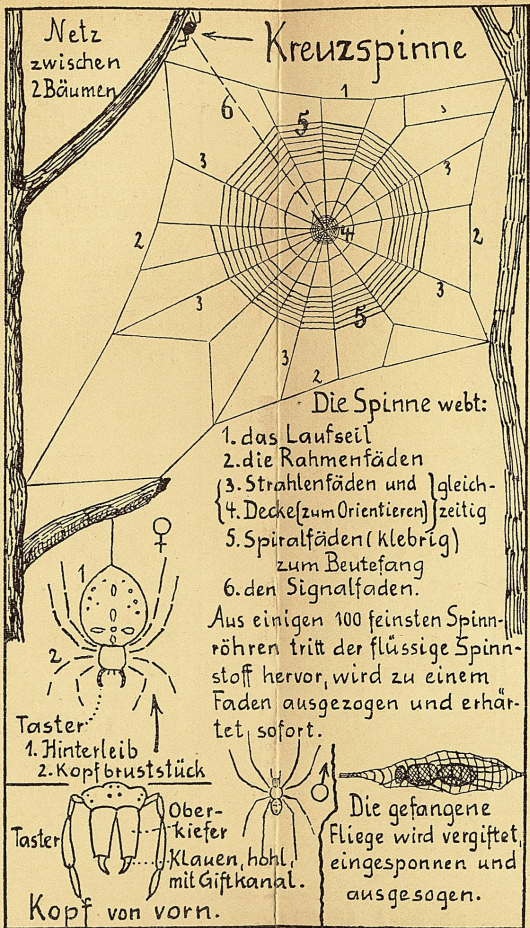 Netz
zwischen
2 Bäumen
Kreuzspinne
1
6
5
3
3
3
4
2
2
3
3
5
3
2
Die Spinne webt:
1. das Laufseil
2. die Rahmenfäden
{3. Strahlenfäden und } gleich-
{4. Decke (zum Orientieren) } zeitig
5. Spiralfäden (klebrig)
zum Beutefang
6. den Signalfaden.
Aus einigen 100 feinsten Spinn-
röhren tritt der flüssige Spinn-
stoff hervor, wird zu einem
Faden ausgezogen und erhär-
tet sofort.
♀
1
2
Taster
1. Hinterleib
2. Kopfbruststück
Taster
Ober-
kiefer
Klauen, hohl,
mit Giftkanal.
Kopf von vorn.
♂
Die gefangene
Fliege wird vergiftet,
eingesponnen und
ausgesogen.